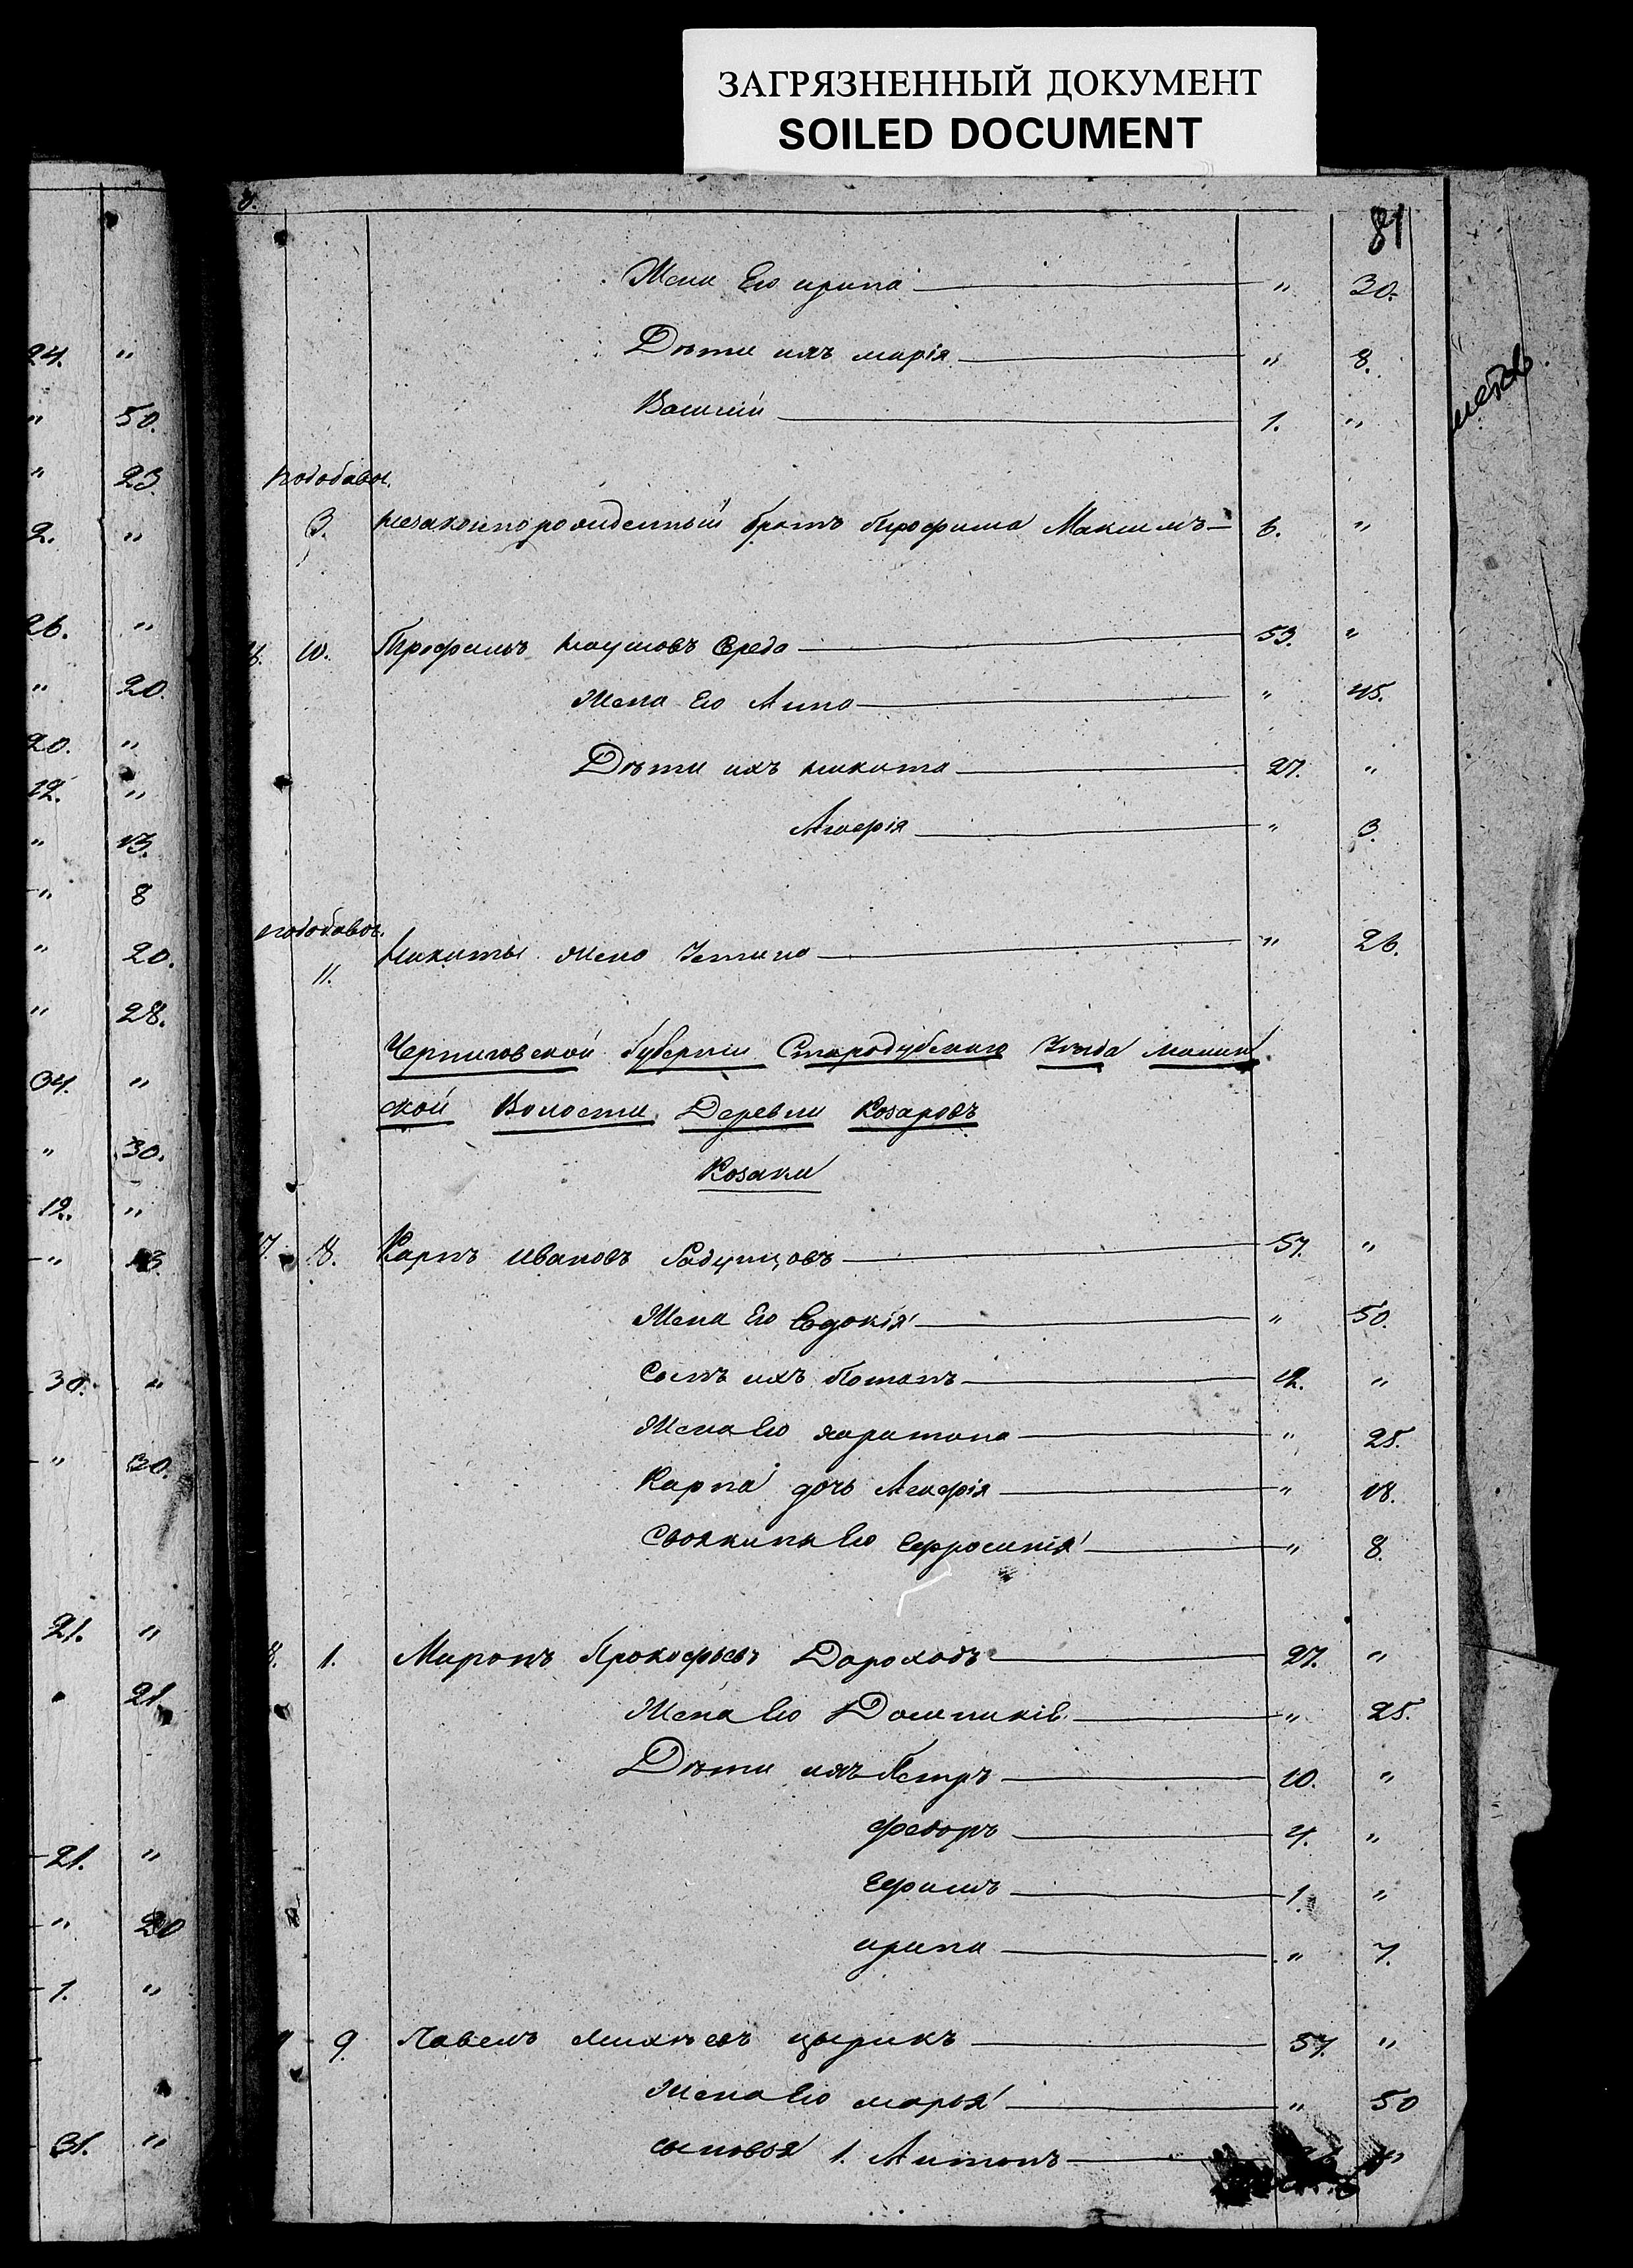 ЗАГРЯЗНЕННЫЙ ДОКУМЕНТ
SOILED DOCUMENT
81
Жена Его ирина " 30.
Дѣти ихъ марія " 8.
Василій 1. "
подобавоч.
3. незаконнорожденный братъ Трофима Максимъ 6. "
10. Трофимъ наумовъ Середа 53. "
Жена Его Анна " 45.
Дѣти ихъ никита 27. "
Агафія " 3.
подобавоч.
11. Никиты жена Устина " 26.
Черниговской Губерніи Стародубскаго Уѣзда
ской Волости Деревни Козаровъ
Козаки
8. Карпъ Ивановъ 57. "
Жена Его Евдокія " 50.
Сынъ ихъ Потапъ 12. "
Жена Его харитина " 25.
Карпа дочь Агафія " 18.
Своякина Его Ефросинія " 8.
8. 1. Миронъ Прокофьевъ Дороходъ 27. "
Жена Его Домникія " 25.
Дѣти ихъ Петръ 10. "
федоръ 4. "
Ефимъ 1. "
ирина " 7.
9. Павелъ михѣевъ цырикъ 57. "
Жена Его марья " 50
сыновья 1. Антонъ "
24. "
" 50.
" 23.
2. "
26. "
" 20.
20. "
12. "
" 13.
" 8
" 20.
" 28.
34. "
" 30.
12. "
" 13.
30. "
" 30.
21. "
" 21.
21. "
" 20
1. "
31. "